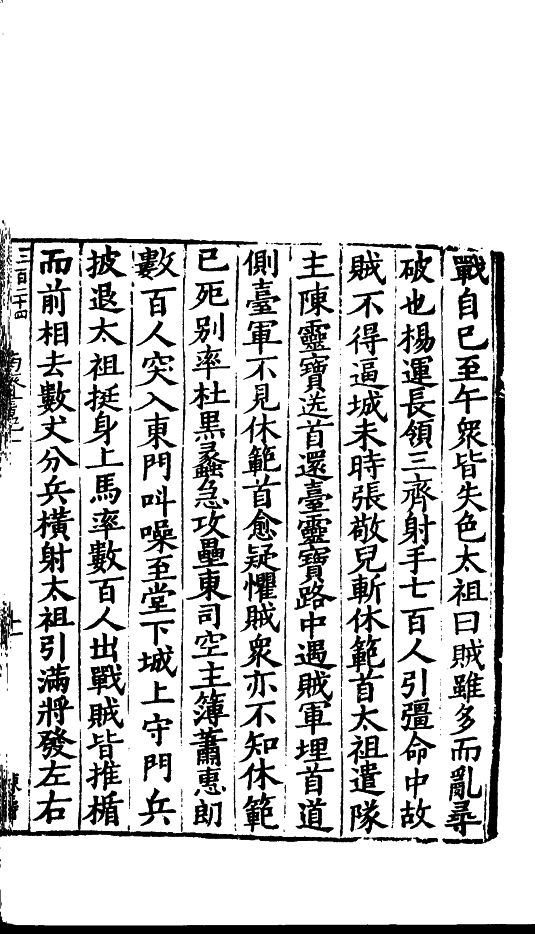 戰自巳至午衆皆失色太祖曰賊雖多而亂尋
破也楊運長領三齊射手七百人引彊命中故
賊不得逼城未時張敬兒斬休範首太祖遣隊
主陳靈寶送首還臺靈寶路中遇賊軍埋首道
側臺軍不見休範首愈疑懼賊衆亦不知休範
已死别率杜黑蠡急攻壘東司空主簿蕭惠朗
數百人突入東門叫噪至堂下城上守門兵
披退太祖挺身上馬率數百人出戰賊皆推楯
而前相去數丈分兵橫射太祖引滿將發左右
三百二十四